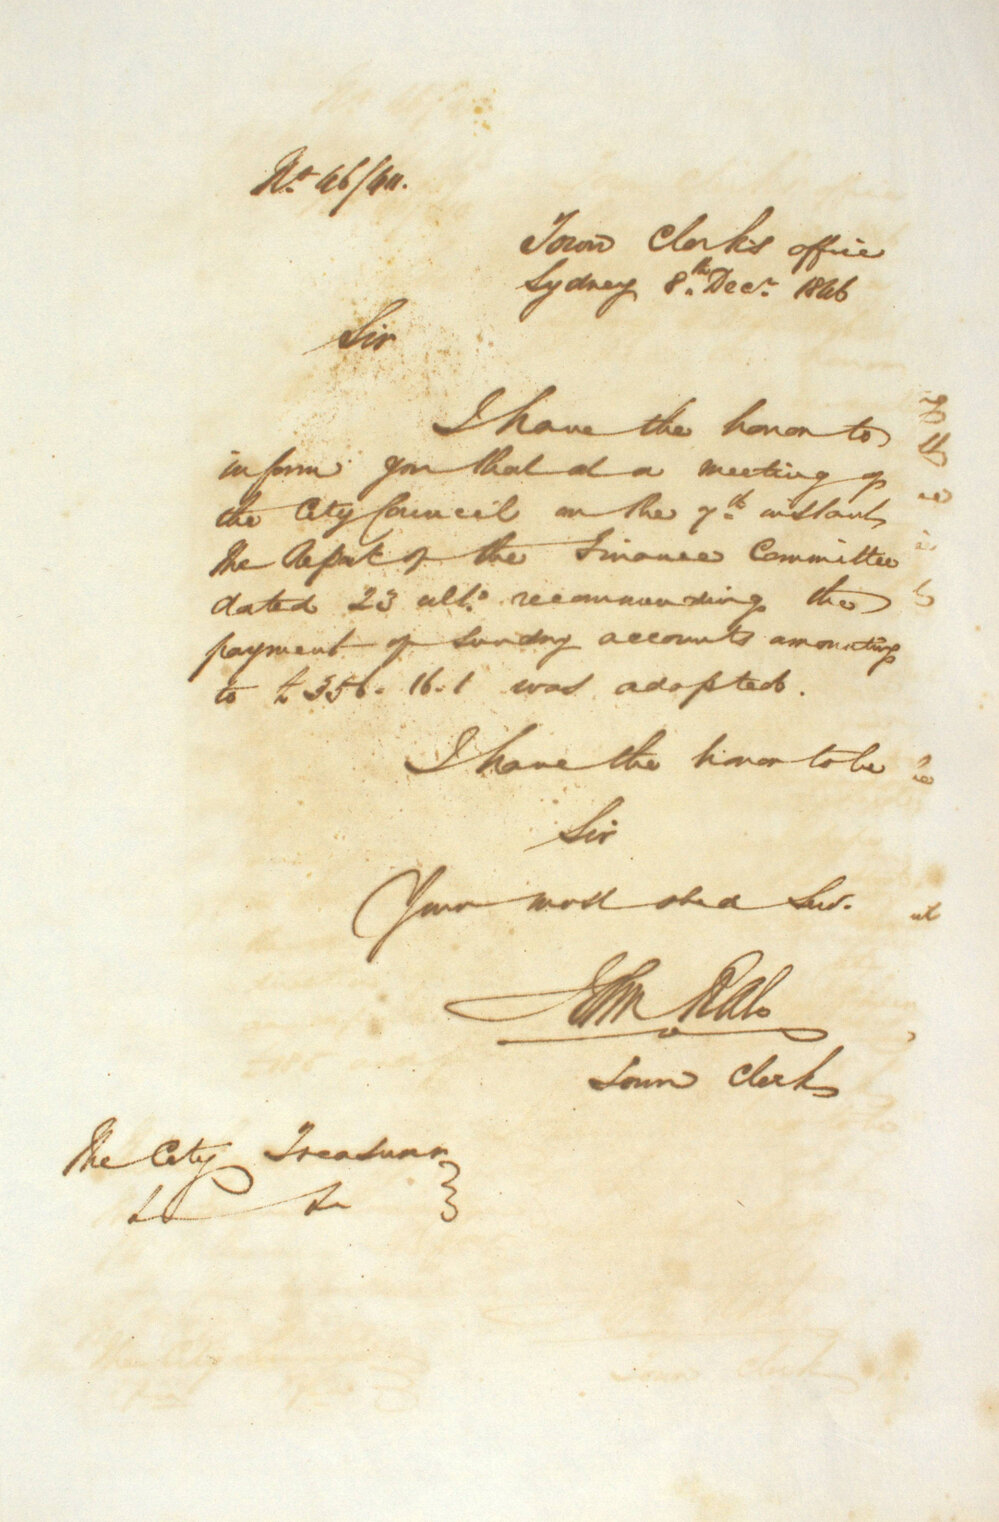 No. 46/40.
Town Clerk's office
Sydney 8th. Decr. 1846
Sir
I have the honor to
inform you that at a meeting of
the City Council on the 7th. instant
the Report of the Finance Committee
dated 23 ulto. recommending the
payment of sundry accounts amounting
to £356. 16. 1 was adopted.
I have the honor to be
Sir
Your most obed Serv.
John Rae
Town Clerk
The City Treasurer
&c &c